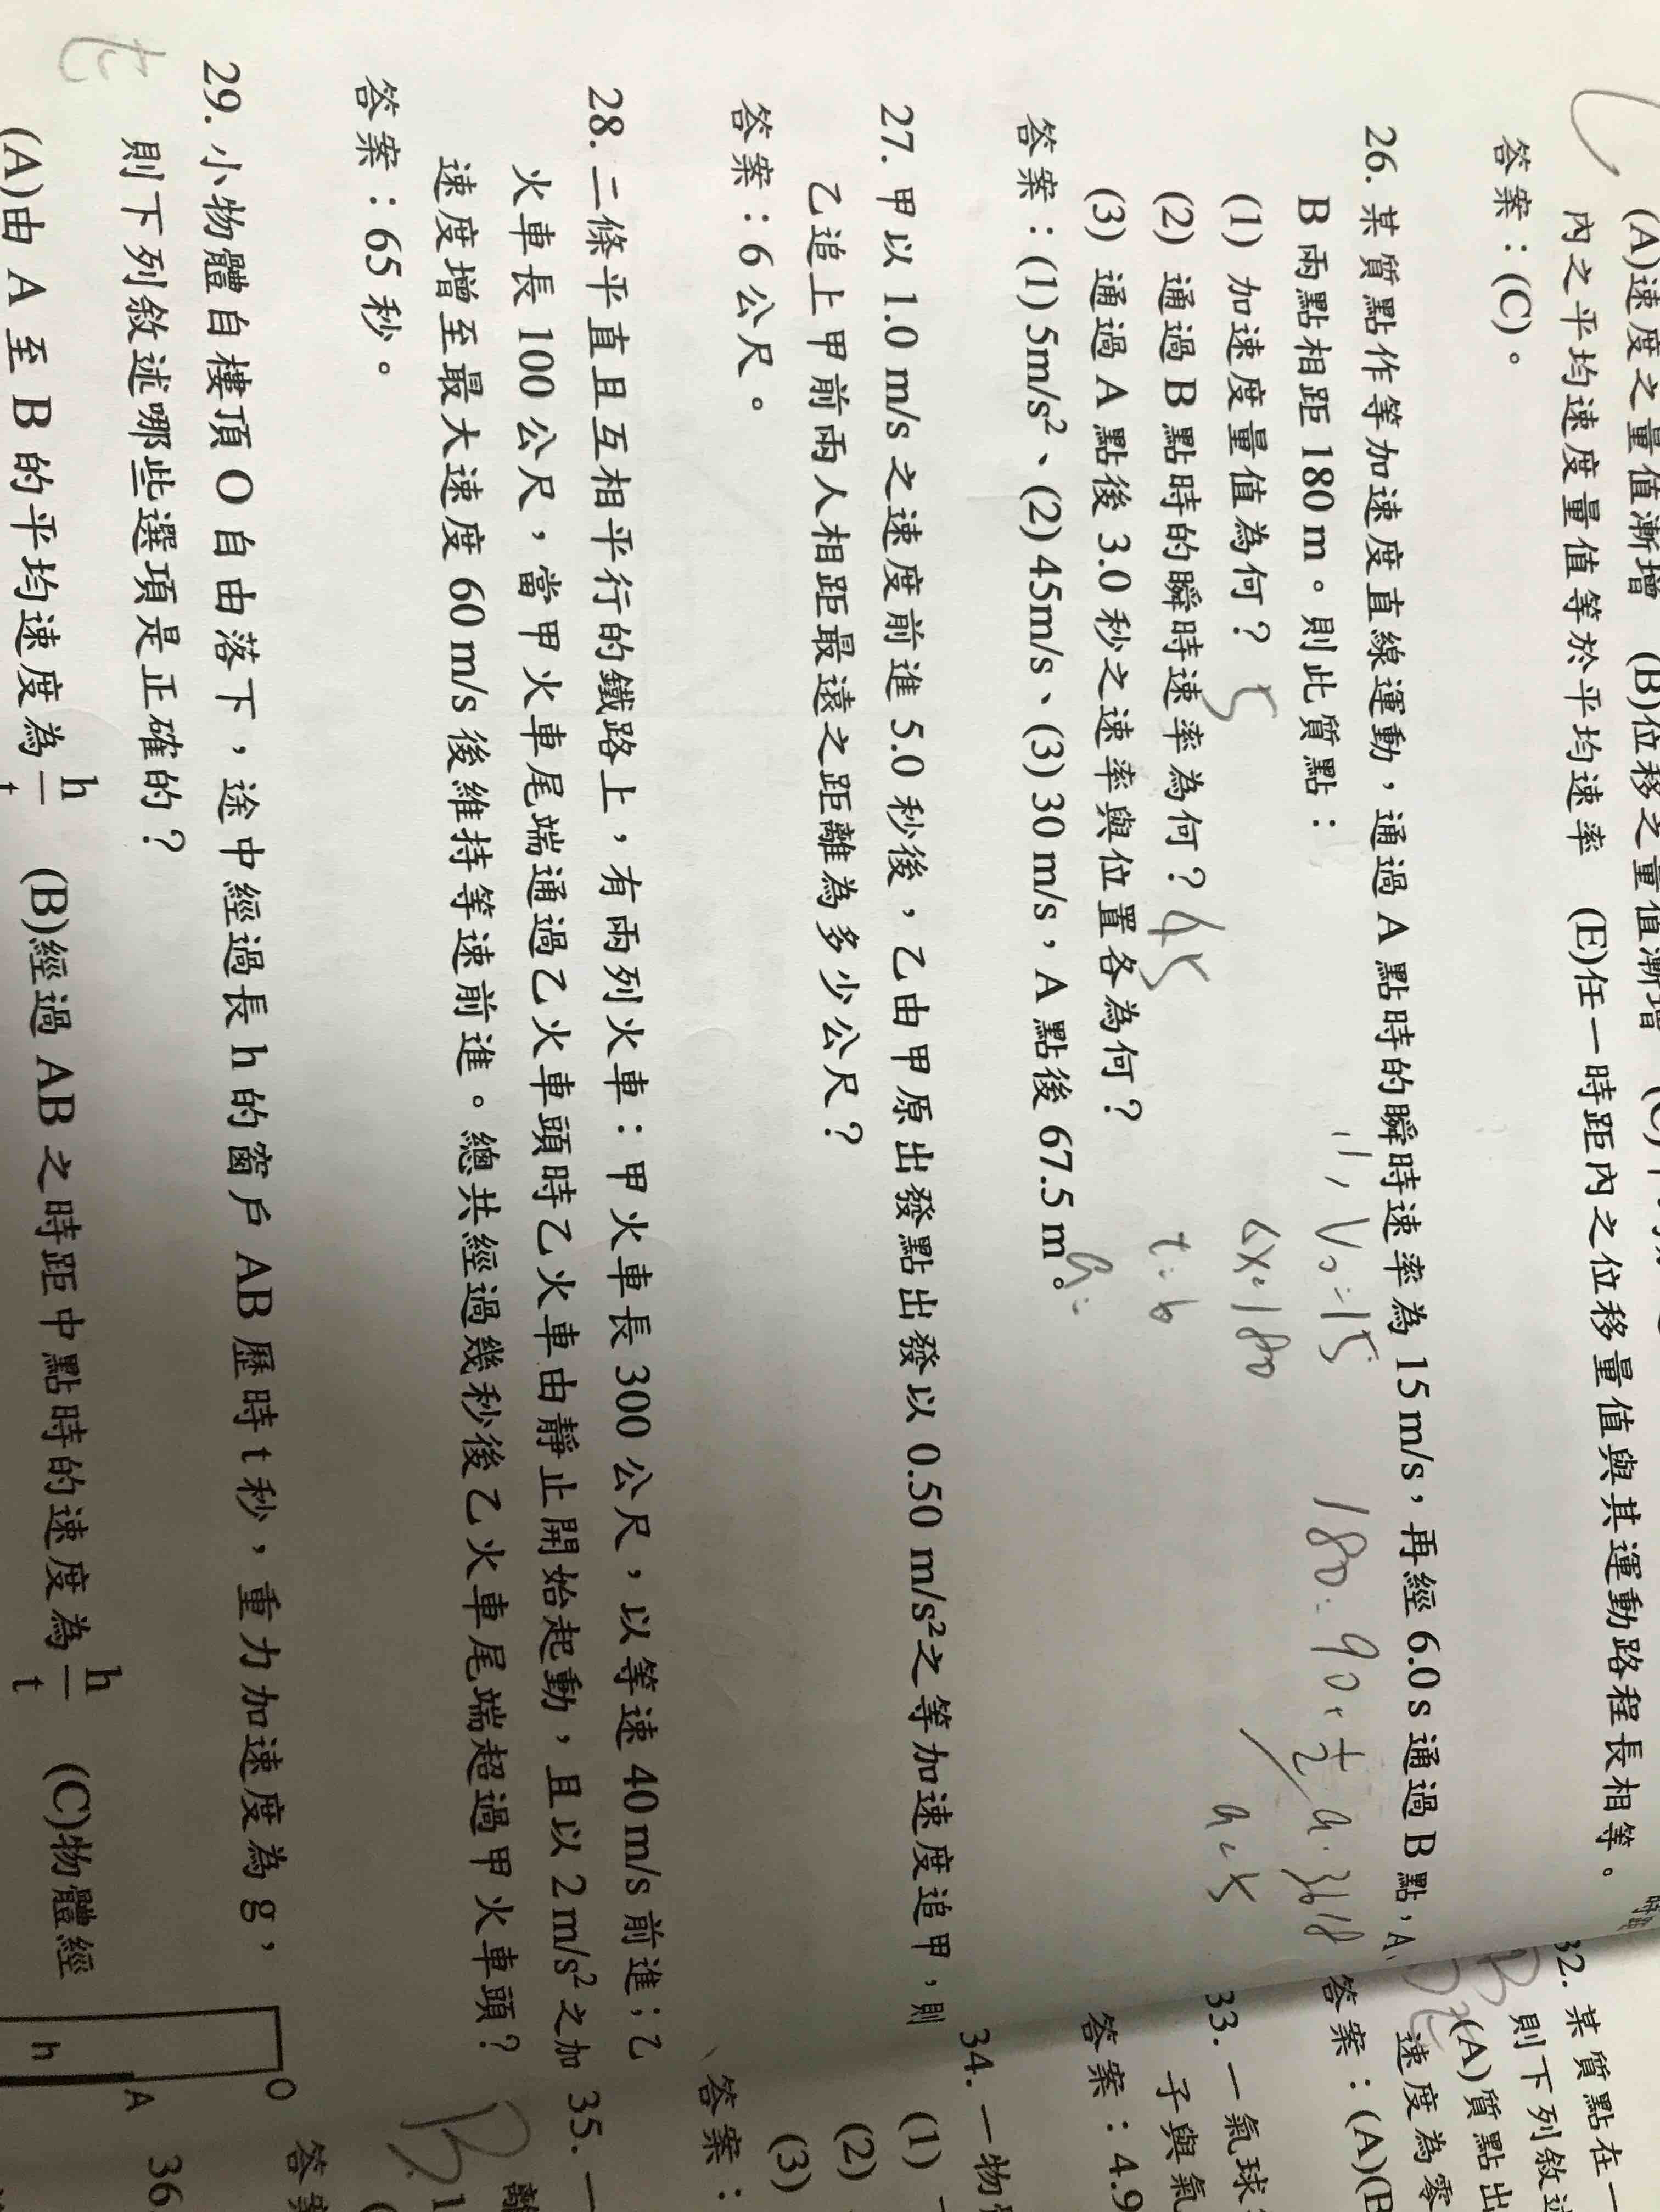 (A)速度之量值漸增 (B)位移之量值漸增
內之平均速度量值等於平均速率 (E)任一時距內之位移量值與其運動路程長相等。
答案：(C)。
26. 某質點作等加速度直線運動，通過 A 點時的瞬時速率為 15 m/s，再經 6.0 s 通過 B 點，A、
B 兩點相距 180 m。則此質點：
(1) 加速度量值為何？ 5
(2) 通過 B 點時的瞬時速率為何？ 45
(3) 通過 A 點後 3.0 秒之速率與位置各為何？
答案：(1) 5m/s²、(2) 45m/s、(3) 30 m/s，A 點後 67.5 m。
V₀=15
Δx=180
t=6
a=
180=90+½a·36 18
a=5
27. 甲以 1.0 m/s 之速度前進 5.0 秒後，乙由甲原出發點出發以 0.50 m/s²之等加速度追甲，則
乙追上甲前兩人相距最遠之距離為多少公尺？
答案：6 公尺。
28. 二條平直且互相平行的鐵路上，有兩列火車：甲火車長 300 公尺，以等速 40 m/s 前進；乙
火車長 100 公尺，當甲火車尾端通過乙火車頭時乙火車由靜止開始起動，且以 2 m/s² 之加
速度增至最大速度 60 m/s 後維持等速前進。總共經過幾秒後乙火車尾端超過甲火車頭？
答案：65 秒。
29. 小物體自樓頂 O 自由落下，途中經過長 h 的窗戶 AB 歷時 t 秒，重力加速度為 g，
則下列敘述哪些選項是正確的？
(A)由 A 至 B 的平均速度為 h/t (B)經過 AB 之時距中點時的速度為 h/t (C)物體經
O
A
h
32. 某質點在一
則下列敘述
(A)質點出
速度為零
答案：(A)(B
33. 一氣球
子與氣
答案：4.9
34. 一物
(1)
(2)
(3)
答案：
35. 一
離
答案
36